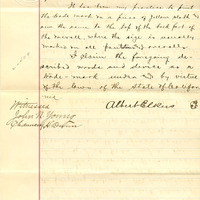 It has been my practice to put
the trade mark on a piece of yellow cloth &
sew the same to the top of the back part of
the overall, where the size is usually
marked on all pantaloons & overalls
I claim the foregoing de-
scribed words and device as a
trade-mark under and by virtue
of the laws of the State of Califor-
nia
Witness
John N. Young
Albert Elkus